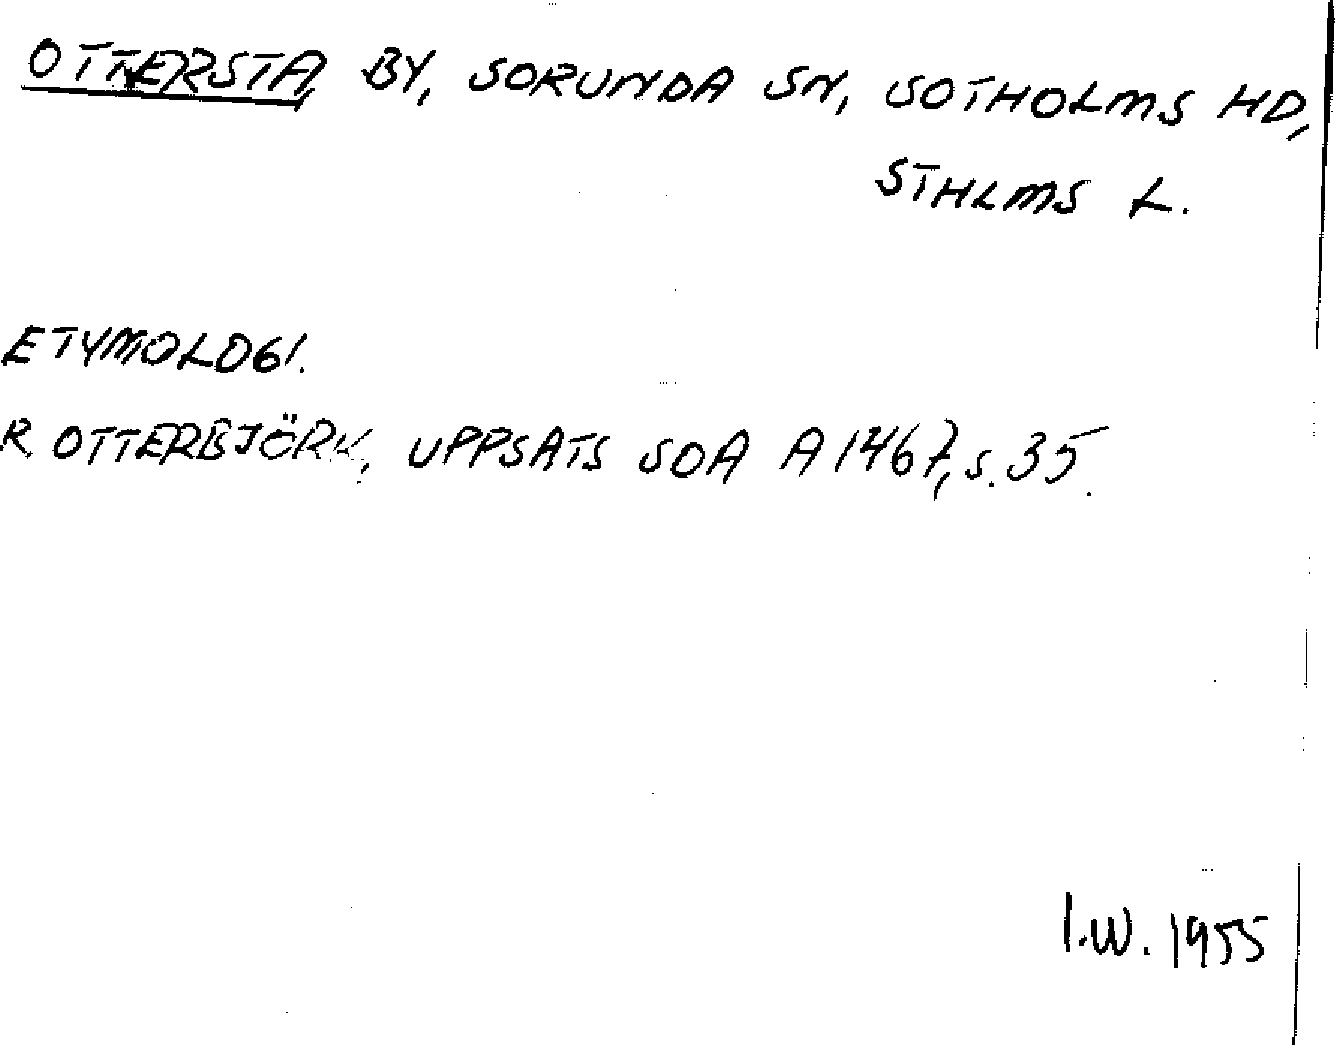 OTTERSTA, BY, SORUNDA SN, SOTHOLMS HD,
STHLMS L.
ETYMOLOGI.
R OTTERBJÖRK, UPPSATS SOA A 1467, s. 35.
I.W. 1955